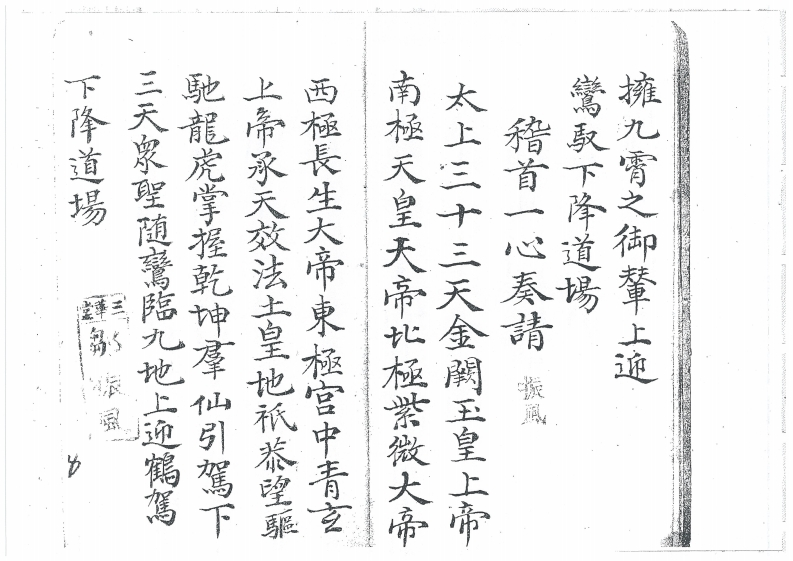 擁九霄之御輦上迎
鸞馭下降道場
稽首一心奏請
振風
太上三十三天金闕玉皇上帝
南極天皇大帝北極紫微大帝
西極長生大帝東極宮中青玄
上帝承天效法土皇地祇恭望驅
馳龍虎掌握乾坤羣仙引駕下
三天眾聖随鸞臨九地上迎鶴駕
下降道場
三
振風
8